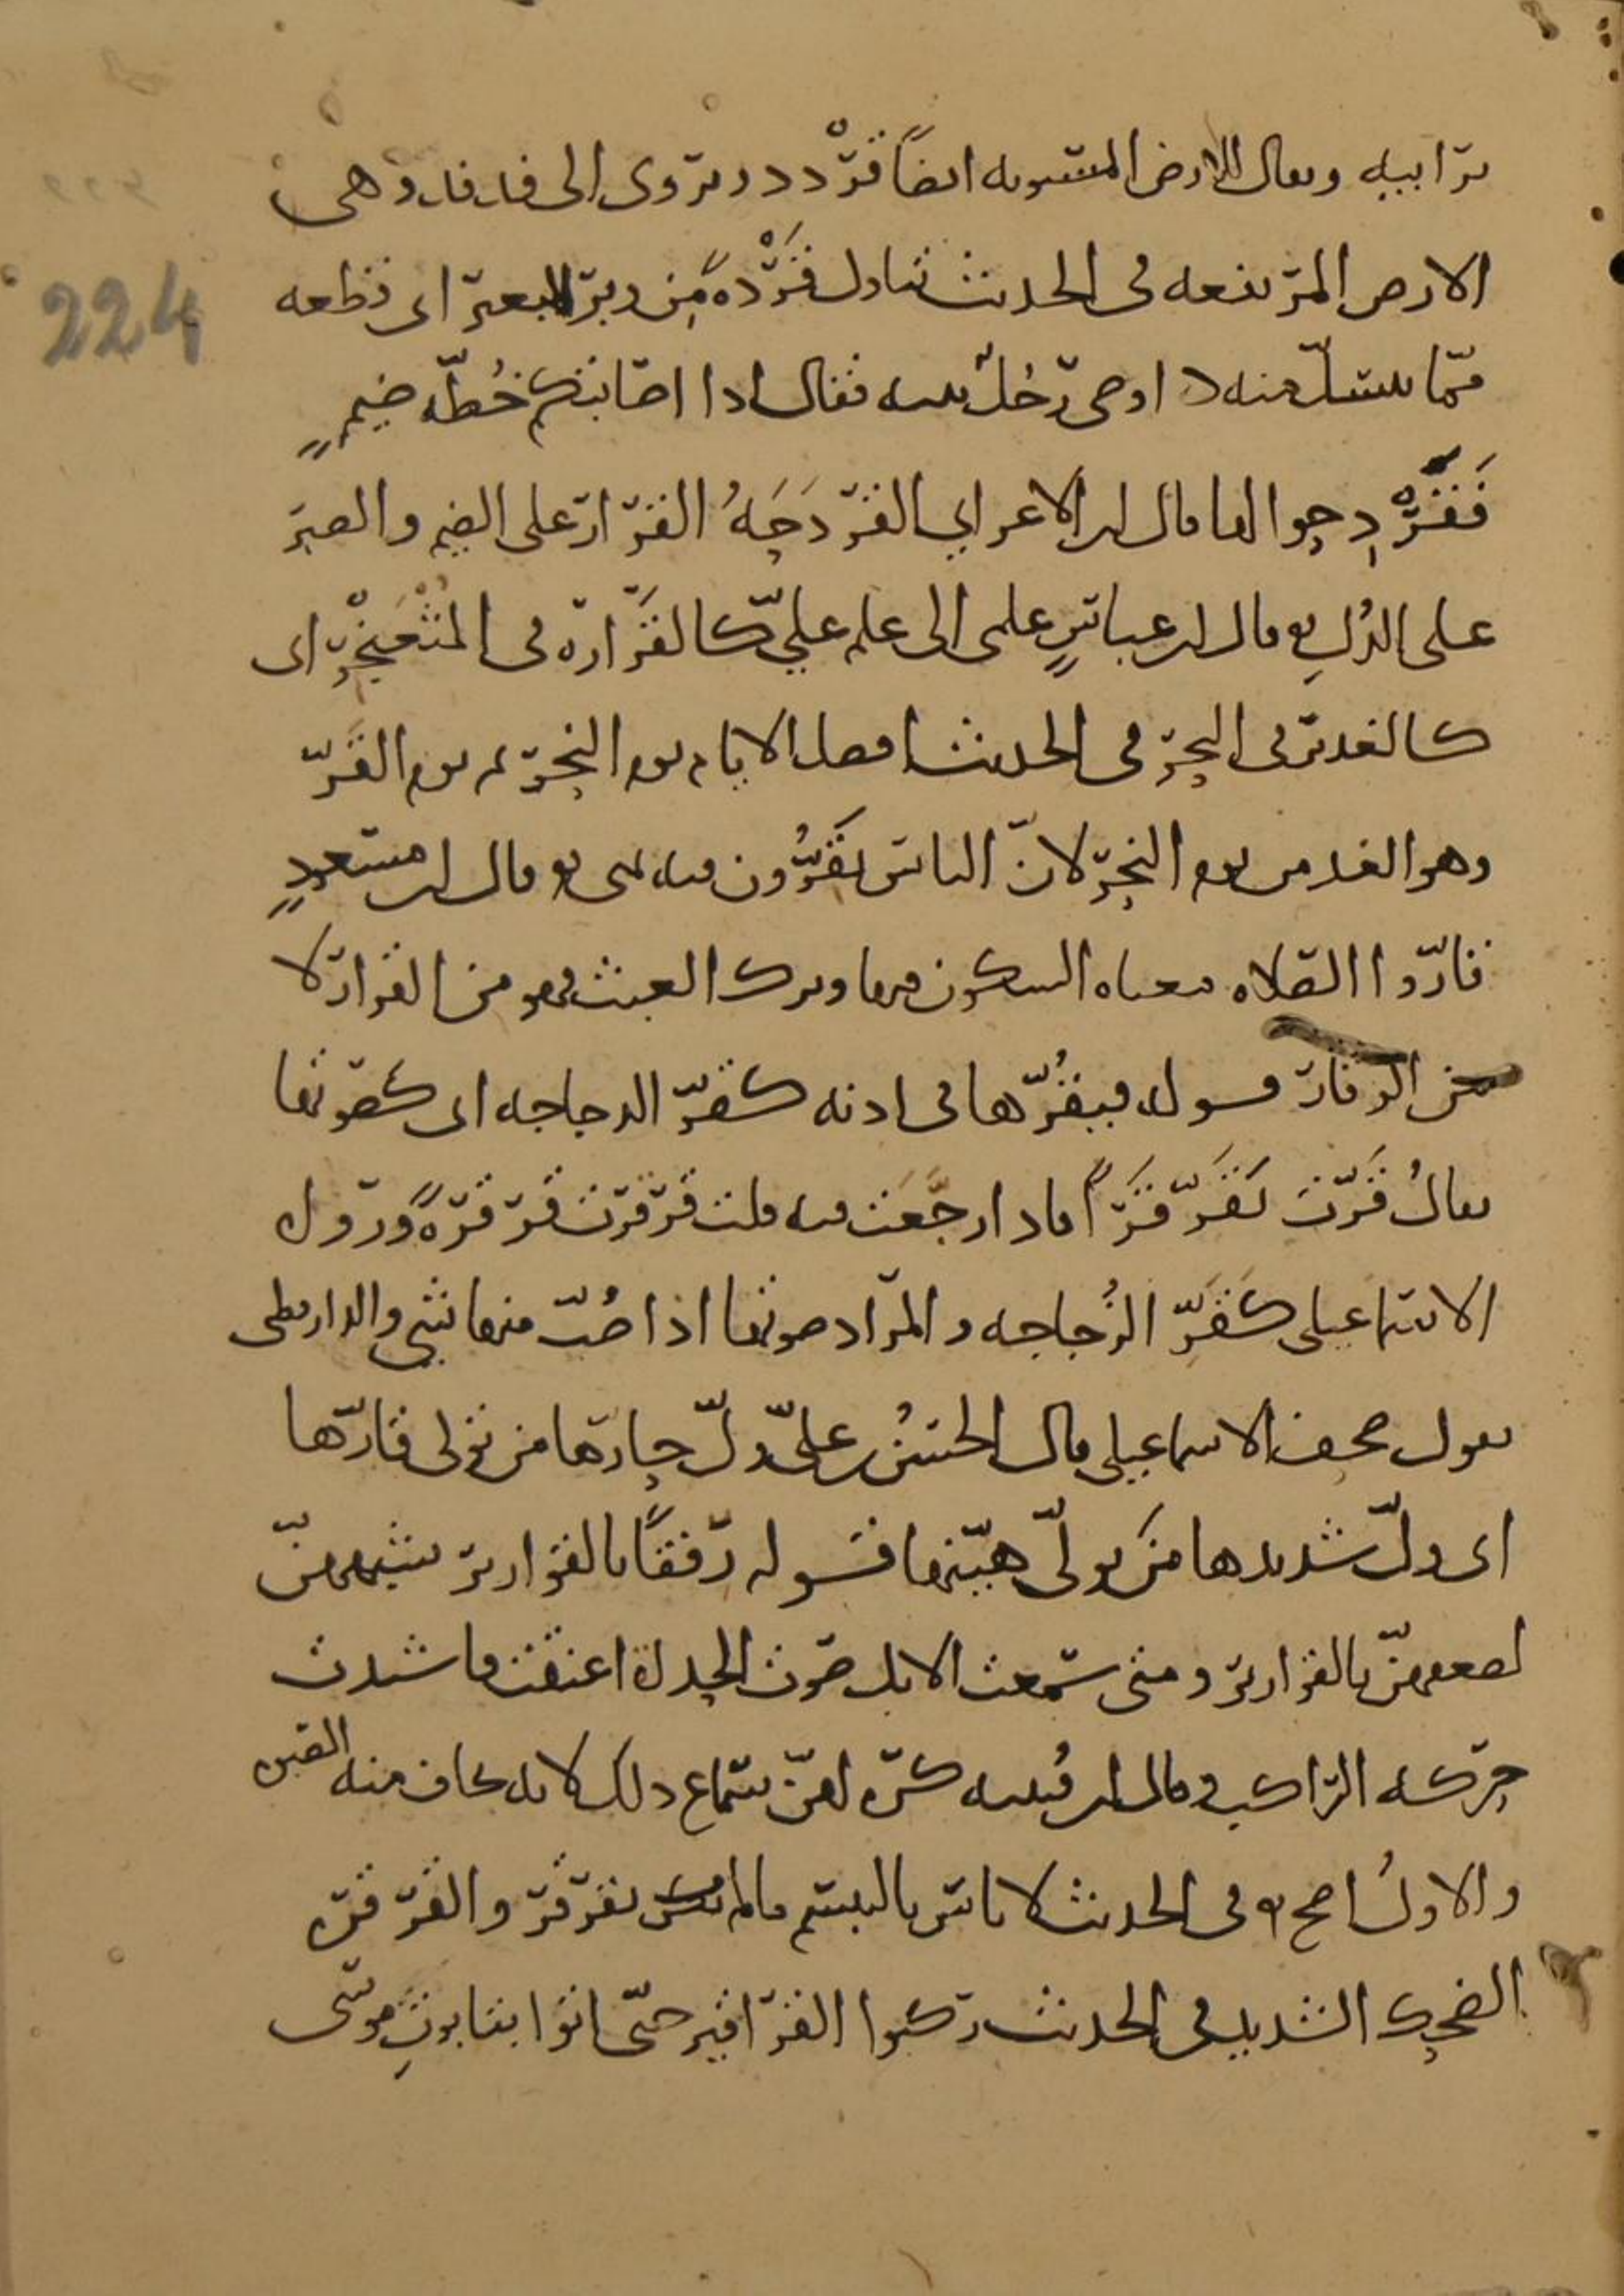 ترابيه ويقال للارض المستويه ايضًا قَرْدد ويروى الى فدفد وهى
الارض المرتفعه فى الحديث تناول قَرَدَةً مِن وبر البعير اى قطعه
مما ينسل منه اوصى رجلٌ بنيه فقال اذا اصابتكم خُطّه ضيمٍ
فقَرْدِحوا لها قال ابن الاعرابي القردحَهُ القرار على الضيم والصبر
على الذلِ قال ابن عباسٍ علمى الى علم عليّ كالقَرارة فى المثعنجِر اى
كالغدير فى البحر فى الحديث افضل الايام يوم النحر ثم يوم القَرّ
وهو الغد من يوم النحر لانّ الناس يَقَرُّون فيه بمنى قال ابن مسعودٍ
قارّوا الصلاه معناه السكون فيها وترك العبث وهو من القرار لا
من الوقار قوله فيقُرّها فى اذنه كقرّ الدجاجه اى كصوتها
يقالُ قَرّت تَقَرّ قَرًّا فاذا رجّعَت فيه قلت قرقرت قرقرةً وروى
الاسماعيلى كقَرّ الزُجاجه والمراد صوتها اذا صُبّ منها شي والدارقطنى
يقول صحف الاسماعيلى قال الحسنُ بن علىّ ولّ حارّها من تولى قارّها
اى ولّ شديدها من تولّى هيّنها قوله رفقًا بالقوارير شبههنّ
لضعفهنّ بالقوارير ومتى سمعت الابل صوت الحداة اعنقت فاشتدت
حركه الراكب وقال ابن قتيبه كره لهنّ سماع ذلك لانه يخاف منه الفتن
والاولُ اصح فى الحديث لا باس بالتبسم مالم يكن يقرقر والقرقره
الضحك الشديد فى الحديث ركبوا القراقير حتّى اتوا بتابوتِ موسى
224